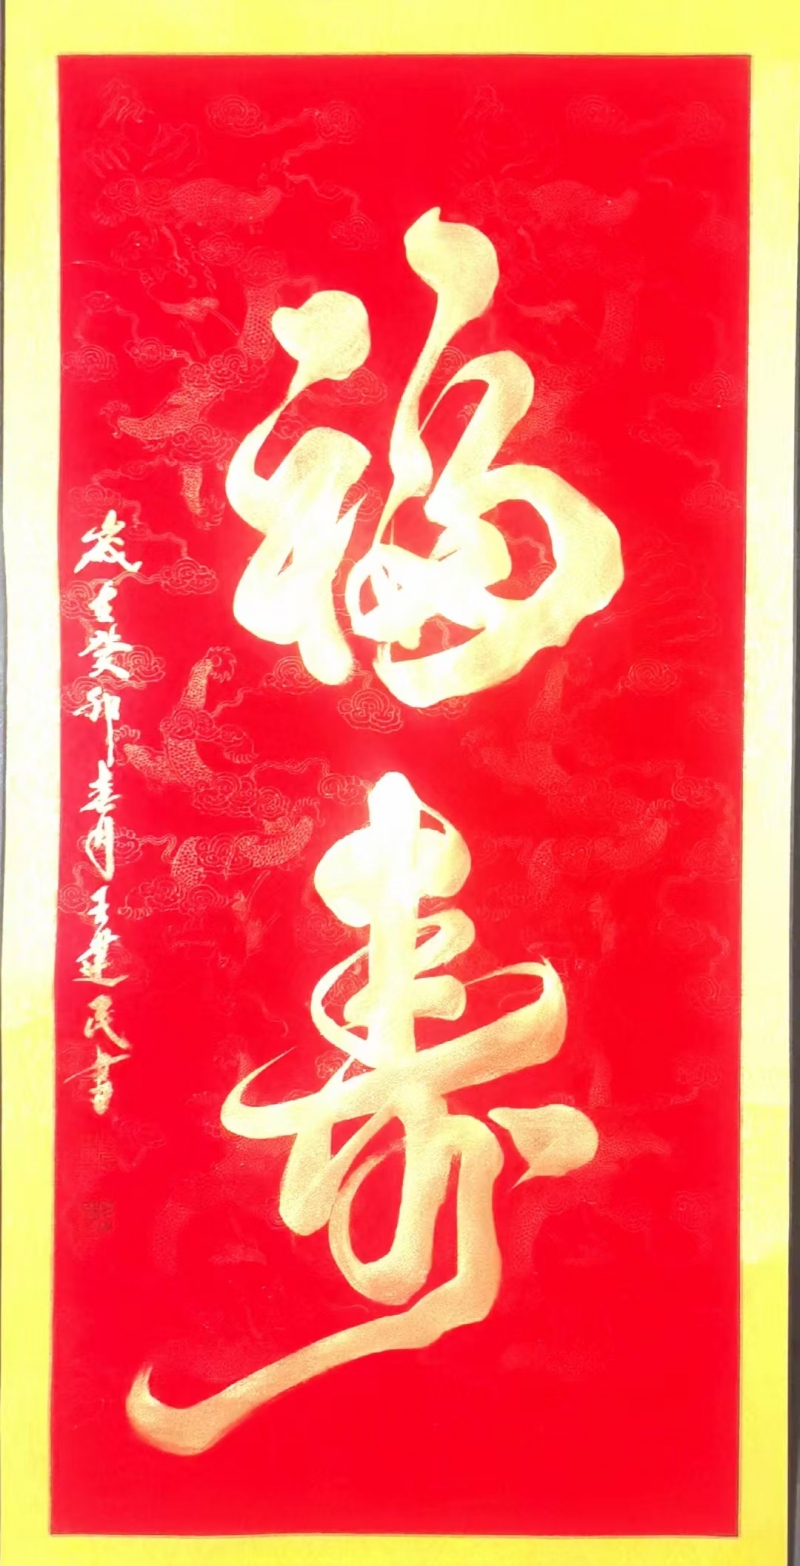 福寿
岁在癸卯春月王建民书